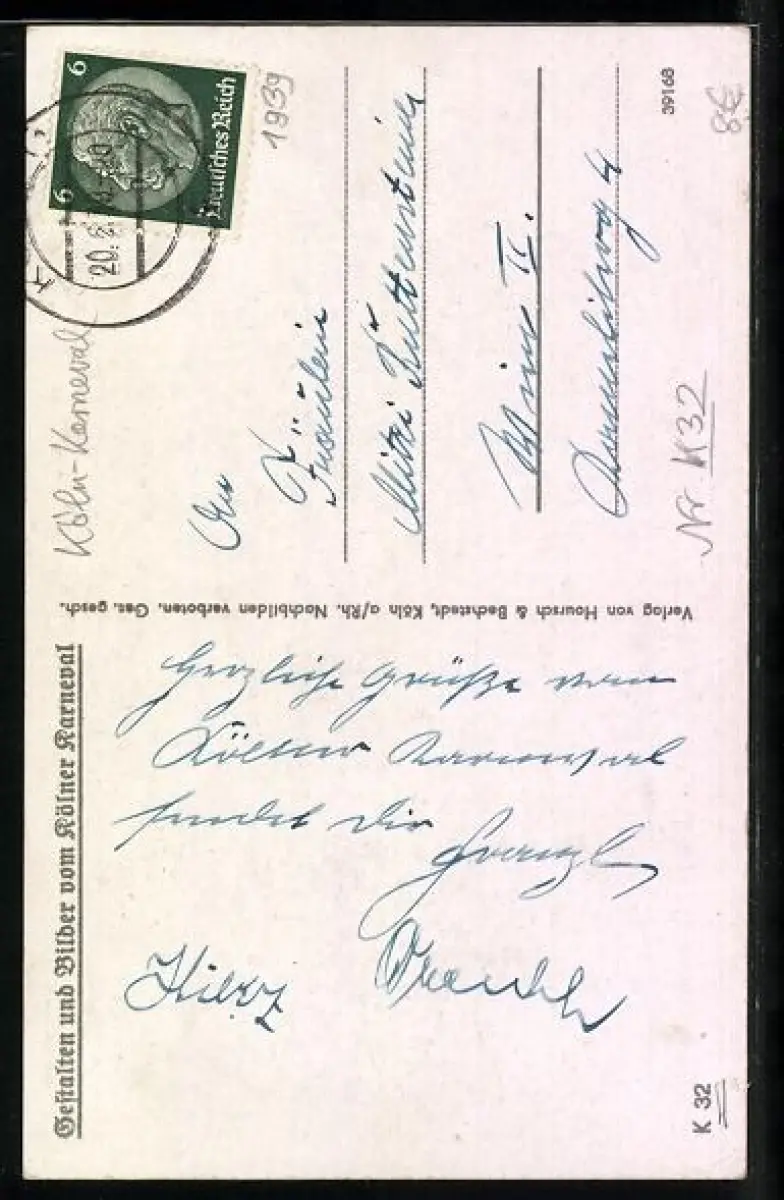 Gestalten und Bilder vom Kölner Karneval
Herzliche Grüße vom
Kölner Karneval
sendet Dir
Franzl
K 32
Verlag von Hoursch & Bechstedt, Köln a/Rh. Nachbilden verboten. Ges. gesch.
Köln-Karneval
1939
6 6
Deutsches Reich
20. 2.
An
Fräulein
Mitzi
Wien II.
4
Nr K 32
39168
8€